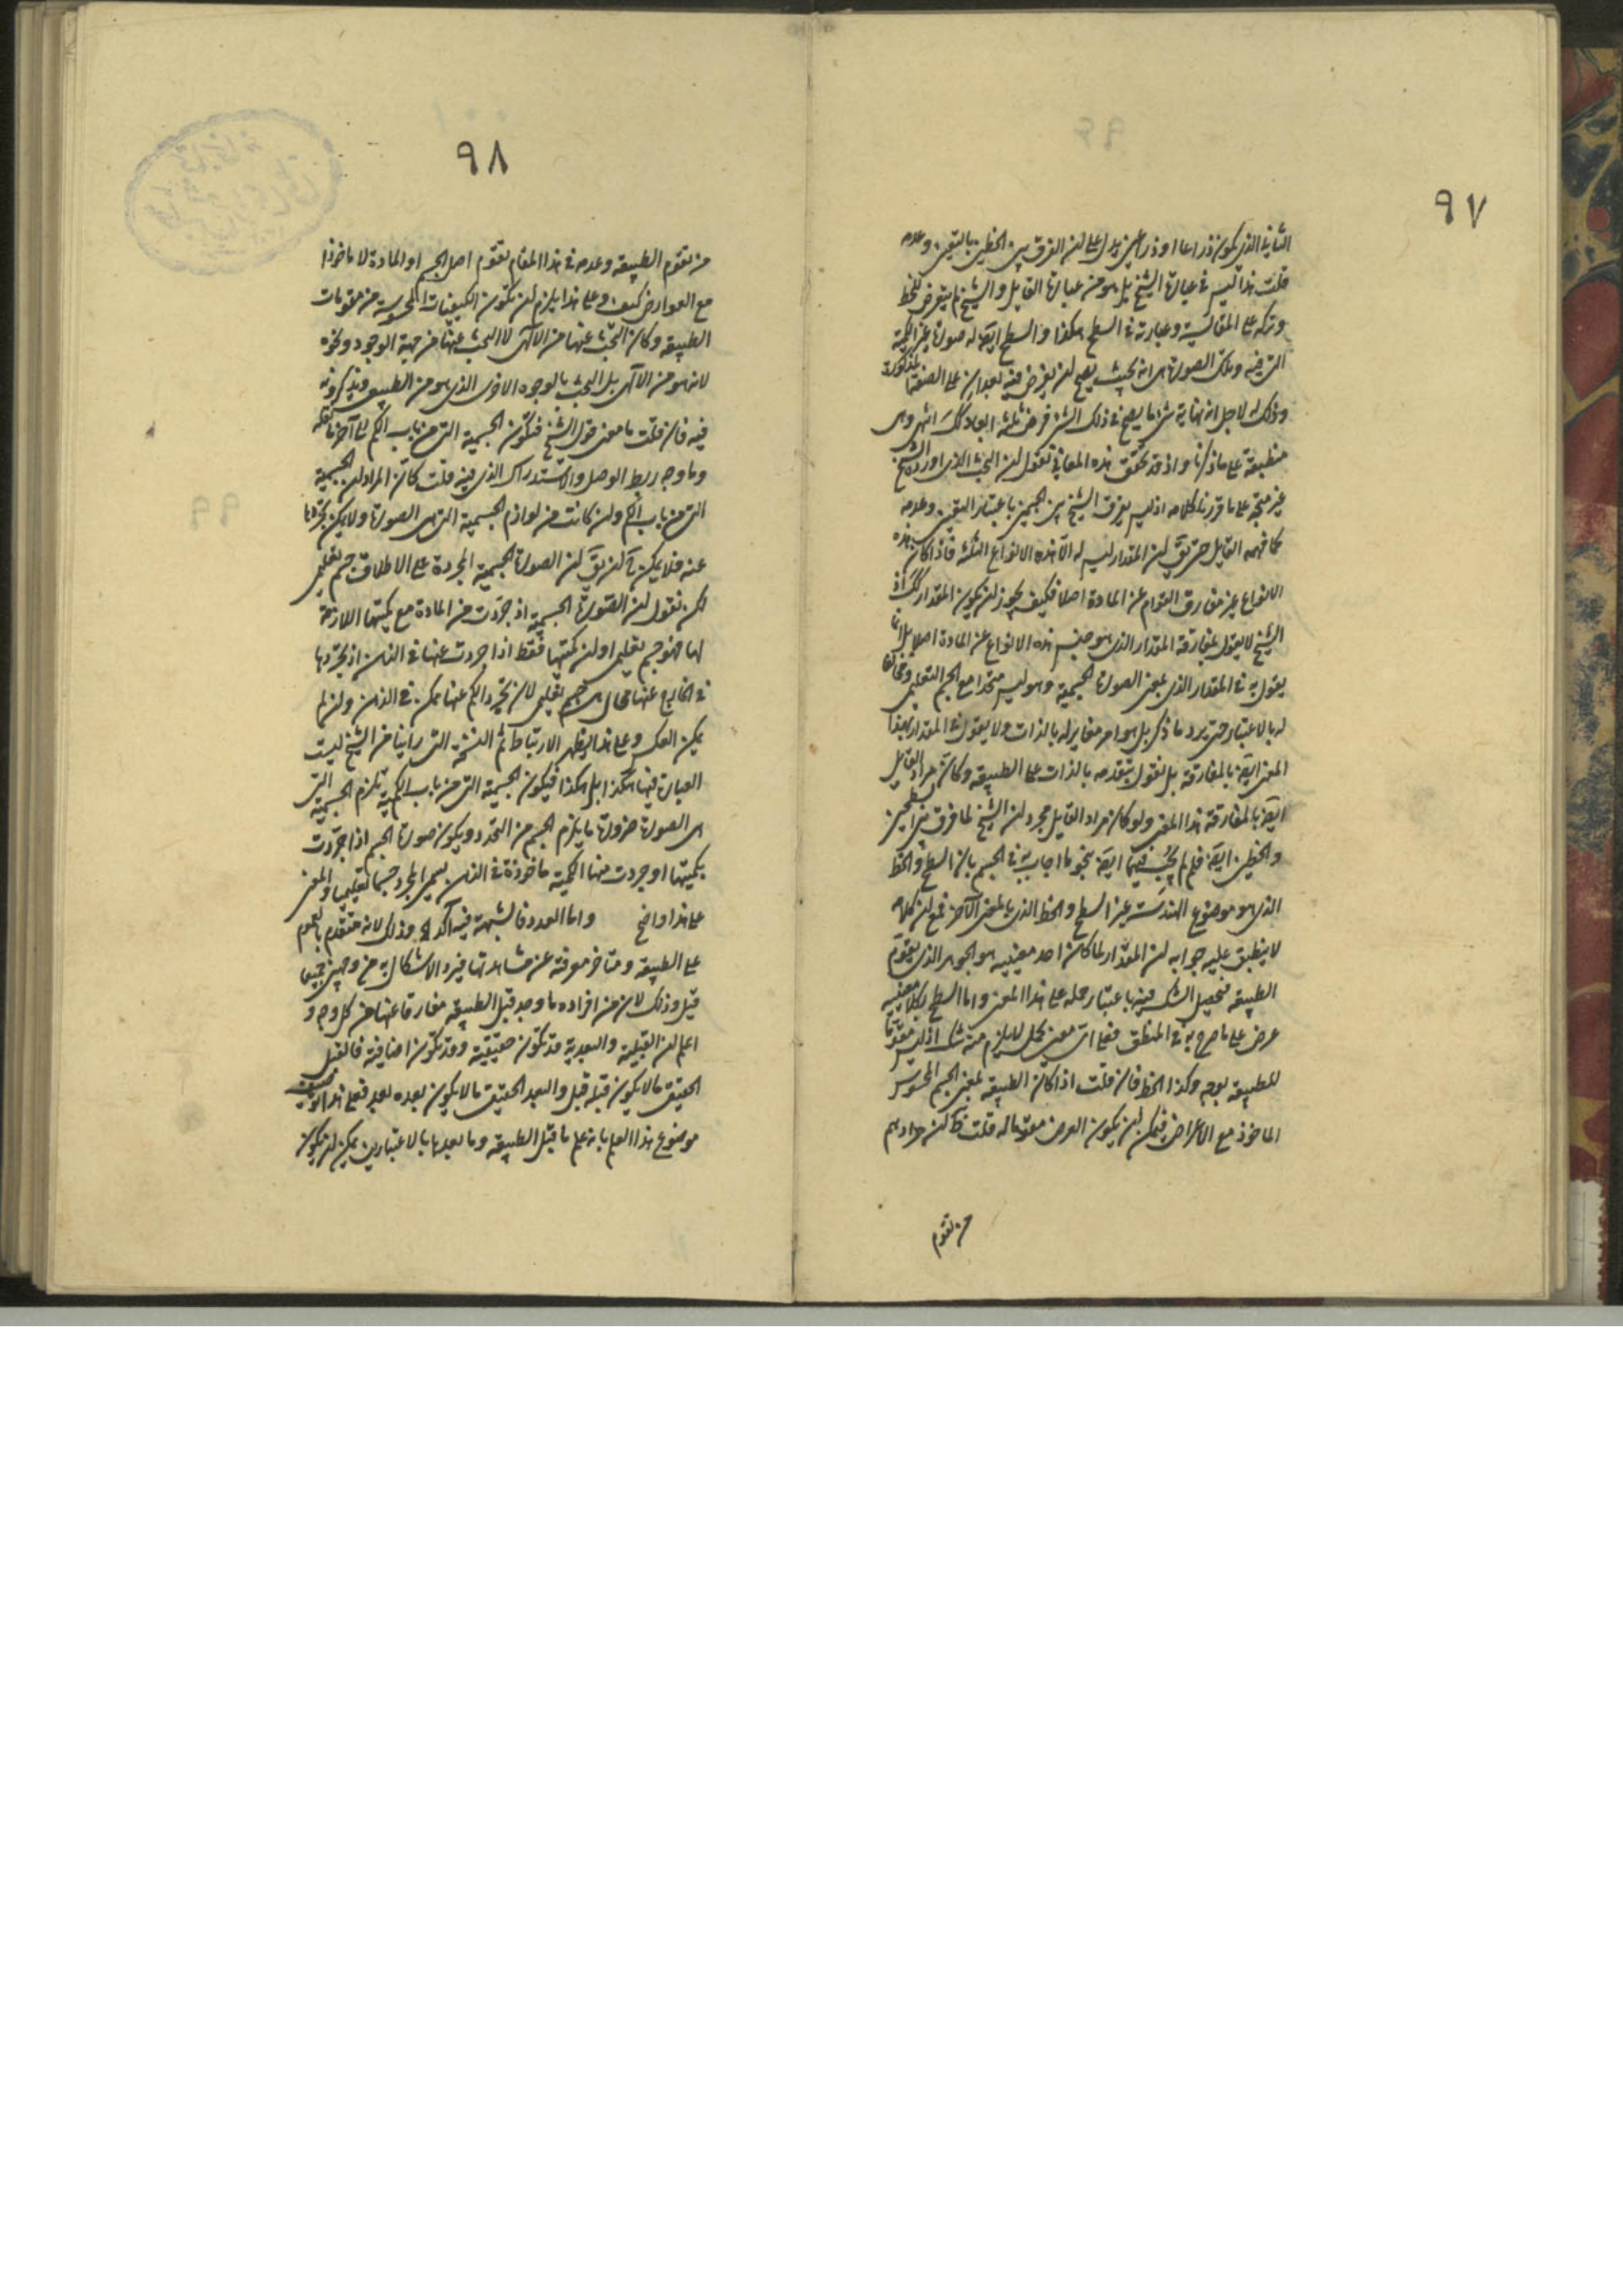 ٩٧
الثاني الذي يكون ذراعا او ذراعين يدل على ان الفرق بين الخطين بالتعين وعدمه
قلت هذا ليس في عبارة الشيخ بل هو من عبارة القايل والشيخ لم يتعرض للخط
وتركه على المقايسة وعبارته في السطح هكذا والسطح ايضا له صورة غير الكمية
التي فيه وتلك الصورة هي انه بحيث يصح ان يفرض فيه بعدان على الصفة المذكورة
وذلك له لاجل انه نهاية شئ ما يصح في ذلك الشئ فرض ثلثة ابعاد كك انتهى وهي
منطبقة على ما ذكرنا واذ قد تحقق هذه المعاني نقول ان البحث الذي اورده الشيخ
غير متجه على ما قررنا كلامه اذ ليس يفرق الشيخ بين الجسمين باعتبار التعين وعدمه
كما فهمه القايل حتى يق ان المقدار ليس له الا هذه الانواع الثلثة فاذا كان هذه
الانواع غير مفارق القوام عن المادة اصلا فكيف يجوز ان يكون المقدار كك اذ
الشيخ لا يقول بمفارقة المقدار الذي هو جنس هذه الانواع عن المادة اصلا بل انما
يقول به في المقدار الذي بمعنى الصورة الجسمية وهو ليس متحدا مع الجسم التعليمي ومخالفا
له بالاعتبار حتى يرد ما ذكر بل هو امر مغاير له بالذات ولا يقول في المقدار بهذا
المعنى ايضا بالمفارقة بل نقول بتقدمه بالذات على الطبيعة وكان مراد القايل
ايضا بالمفارقة هذا المعنى ولو كان مراد القايل مجرد ان الشيخ لما فرق بين السطحين
والخطين ايضا فلم لم يجب فيهما ايضا بنحو ما اجاب به في الجسم بان السطح والخط
الذي هو موضوع الهندسة غير السطح والخط الذي بالمعنى الآخر فمع ان كلامه
لا ينطبق عليه جوابه ان المقدار لما كان احد معنييه هو الجوهر الذي يقوم
الطبيعة فيحصل الشك فيه باعتبار حمله على هذا المعنى واما السطح بكلا معنييه
عرض على ما صرح به في المنطق فعلى اي معنى يحمل لا يلزم منه شك اذ ليس مقوما
للطبيعة بوجه وكذا الخط فان قلت اذا كان الطبيعة بمعنى الجسم المحسوس
الماخوذ مع الاعراض فيمكن ان يكون العرض مقوما له قلت ظ ان مرادهم
من تقوم
٩٨
من تقوم الطبيعة وعدمه في هذا المقام تقوم اصل الجسم او المادة لا ماخوذا
مع العوارض كيف وعلى هذا يلزم ان تكون الكيفيات المحسوسة من مقومات
الطبيعة وكان البحث عنها من الالهى لا البحث عنها من جهة الوجود ونحوه
لانه هو من الالهى بل البحث بالوجوه الاخرى الذي هو من الطبيعى ويذكرونه
فيه فان قلت ما معنى قول الشيخ فتكون الجسمية التي من باب الكم الى آخر ما نقله
وما وجه ربط الوصل والاستدراك الذي فيه قلت كان المراد ان الجسمية
التي من باب الكم وان كانت من لوازم الجسمية التي هي الصورة ولا يمكن تجردها
عنه فلا يمكن ان يق ان الصورة الجسمية المجردة على الاطلاق جسم تعليمي
لكن نقول ان الصورة الجسمية اذ جردت من المادة مع كميتها اللازمة
لها فهو جسم تعليمي او ان كميتها فقط اذا جردت عنها في الذهن اذ تجردها
في الخارج عنها محال هي جسم تعليمي لان تجرد الكم عنها ممكن في الذهن وان لم
يمكن العكس وعلى هذا يظهر الارتباط ثم النسخة التي راينا من الشيخ ليست
العبارة فيها هكذا بل هكذا فيكون الجسمية التي من باب الكمية تلزم الجسمية التي
هي الصورة ضرورة ما يلزم الجسم من التحدد ويكون صورة الجسم اذا جردت
بكميتها او جردت منها الكمية ماخوذة في الذهن يسمى المجرد جسما تعليميا والمعنى
على هذا واضح واما العدد فالشبهة فيه آكد وذلك لانه متقدم بالعموم
على الطبيعة ومتاخر معرفة عن مشاهدتها فيرد الاشكال به من وجهين جميعا
قيل وذلك لان من افراده ما وجد قبل الطبيعة مفارقا عنها من كل وجه و
اعلم ان القبلية والبعدية قد تكون حقيقية وقد تكون اضافية فالقبل
الحقيقي ما لا يكون قبله قبل والبعد الحقيقي ما لا يكون بعده بعد فعلى هذا توصيف
موضوع هذا العلم بانه علم ما قبل الطبيعة وما بعدها بالاعتبارين يمكن ان يكون